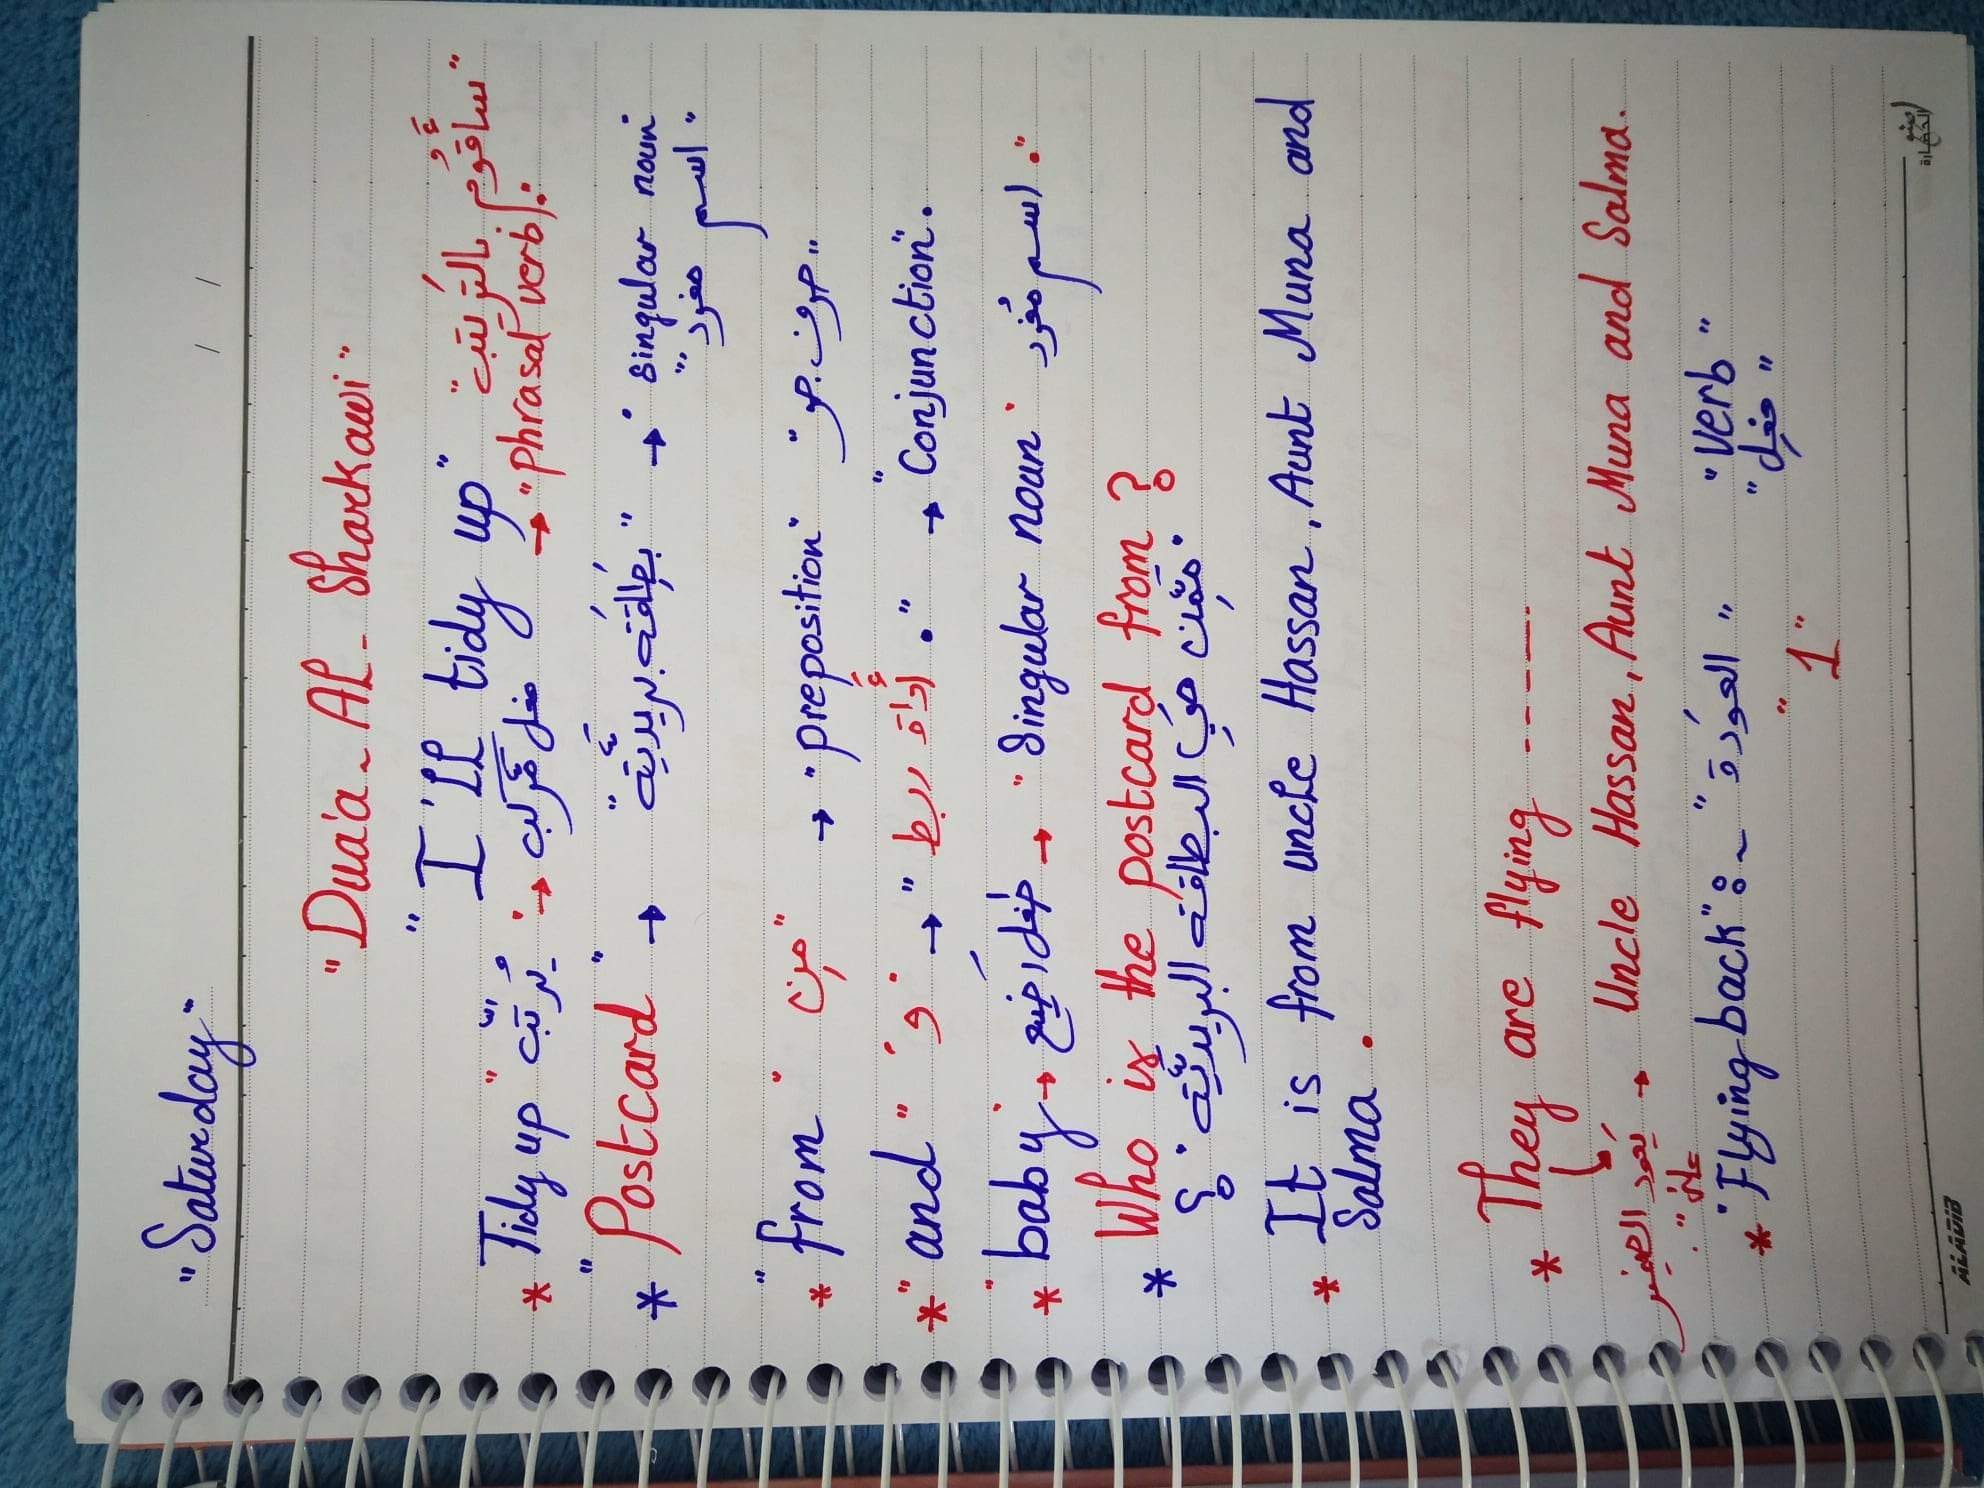 "Saturday"
/ /
"Dua'a - AL - Sharkawi"
"I'll tidy up" "سأقُوم بالتَرتيب"
* Tidy up "يُرتّب" → فعل مُركب → "phrasal verb".
* "Postcard" → "بطَاقَة بريديَّة" → "singular noun"
"اسم مفرد"
* "from" "من" → "preposition" "حرف جر"
* "and" "و" → "أَداة ربط". → "Conjunction".
* "baby" → طفل رَضيع → "Singular noun" اسم مُفرد."
* Who is the postcard from ?
ممَّن هيَ البطاقَة البريديَّة ؟
* It is from uncle Hassan, Aunt Muna and
Salma.
* They are flying -----
يَعود الضمير → Uncle Hassan, Aunt Muna and Salma.
على".
* "Flying back": ~ "العَودَة" "Verb"
"فعل"
"1"
ALAVIB